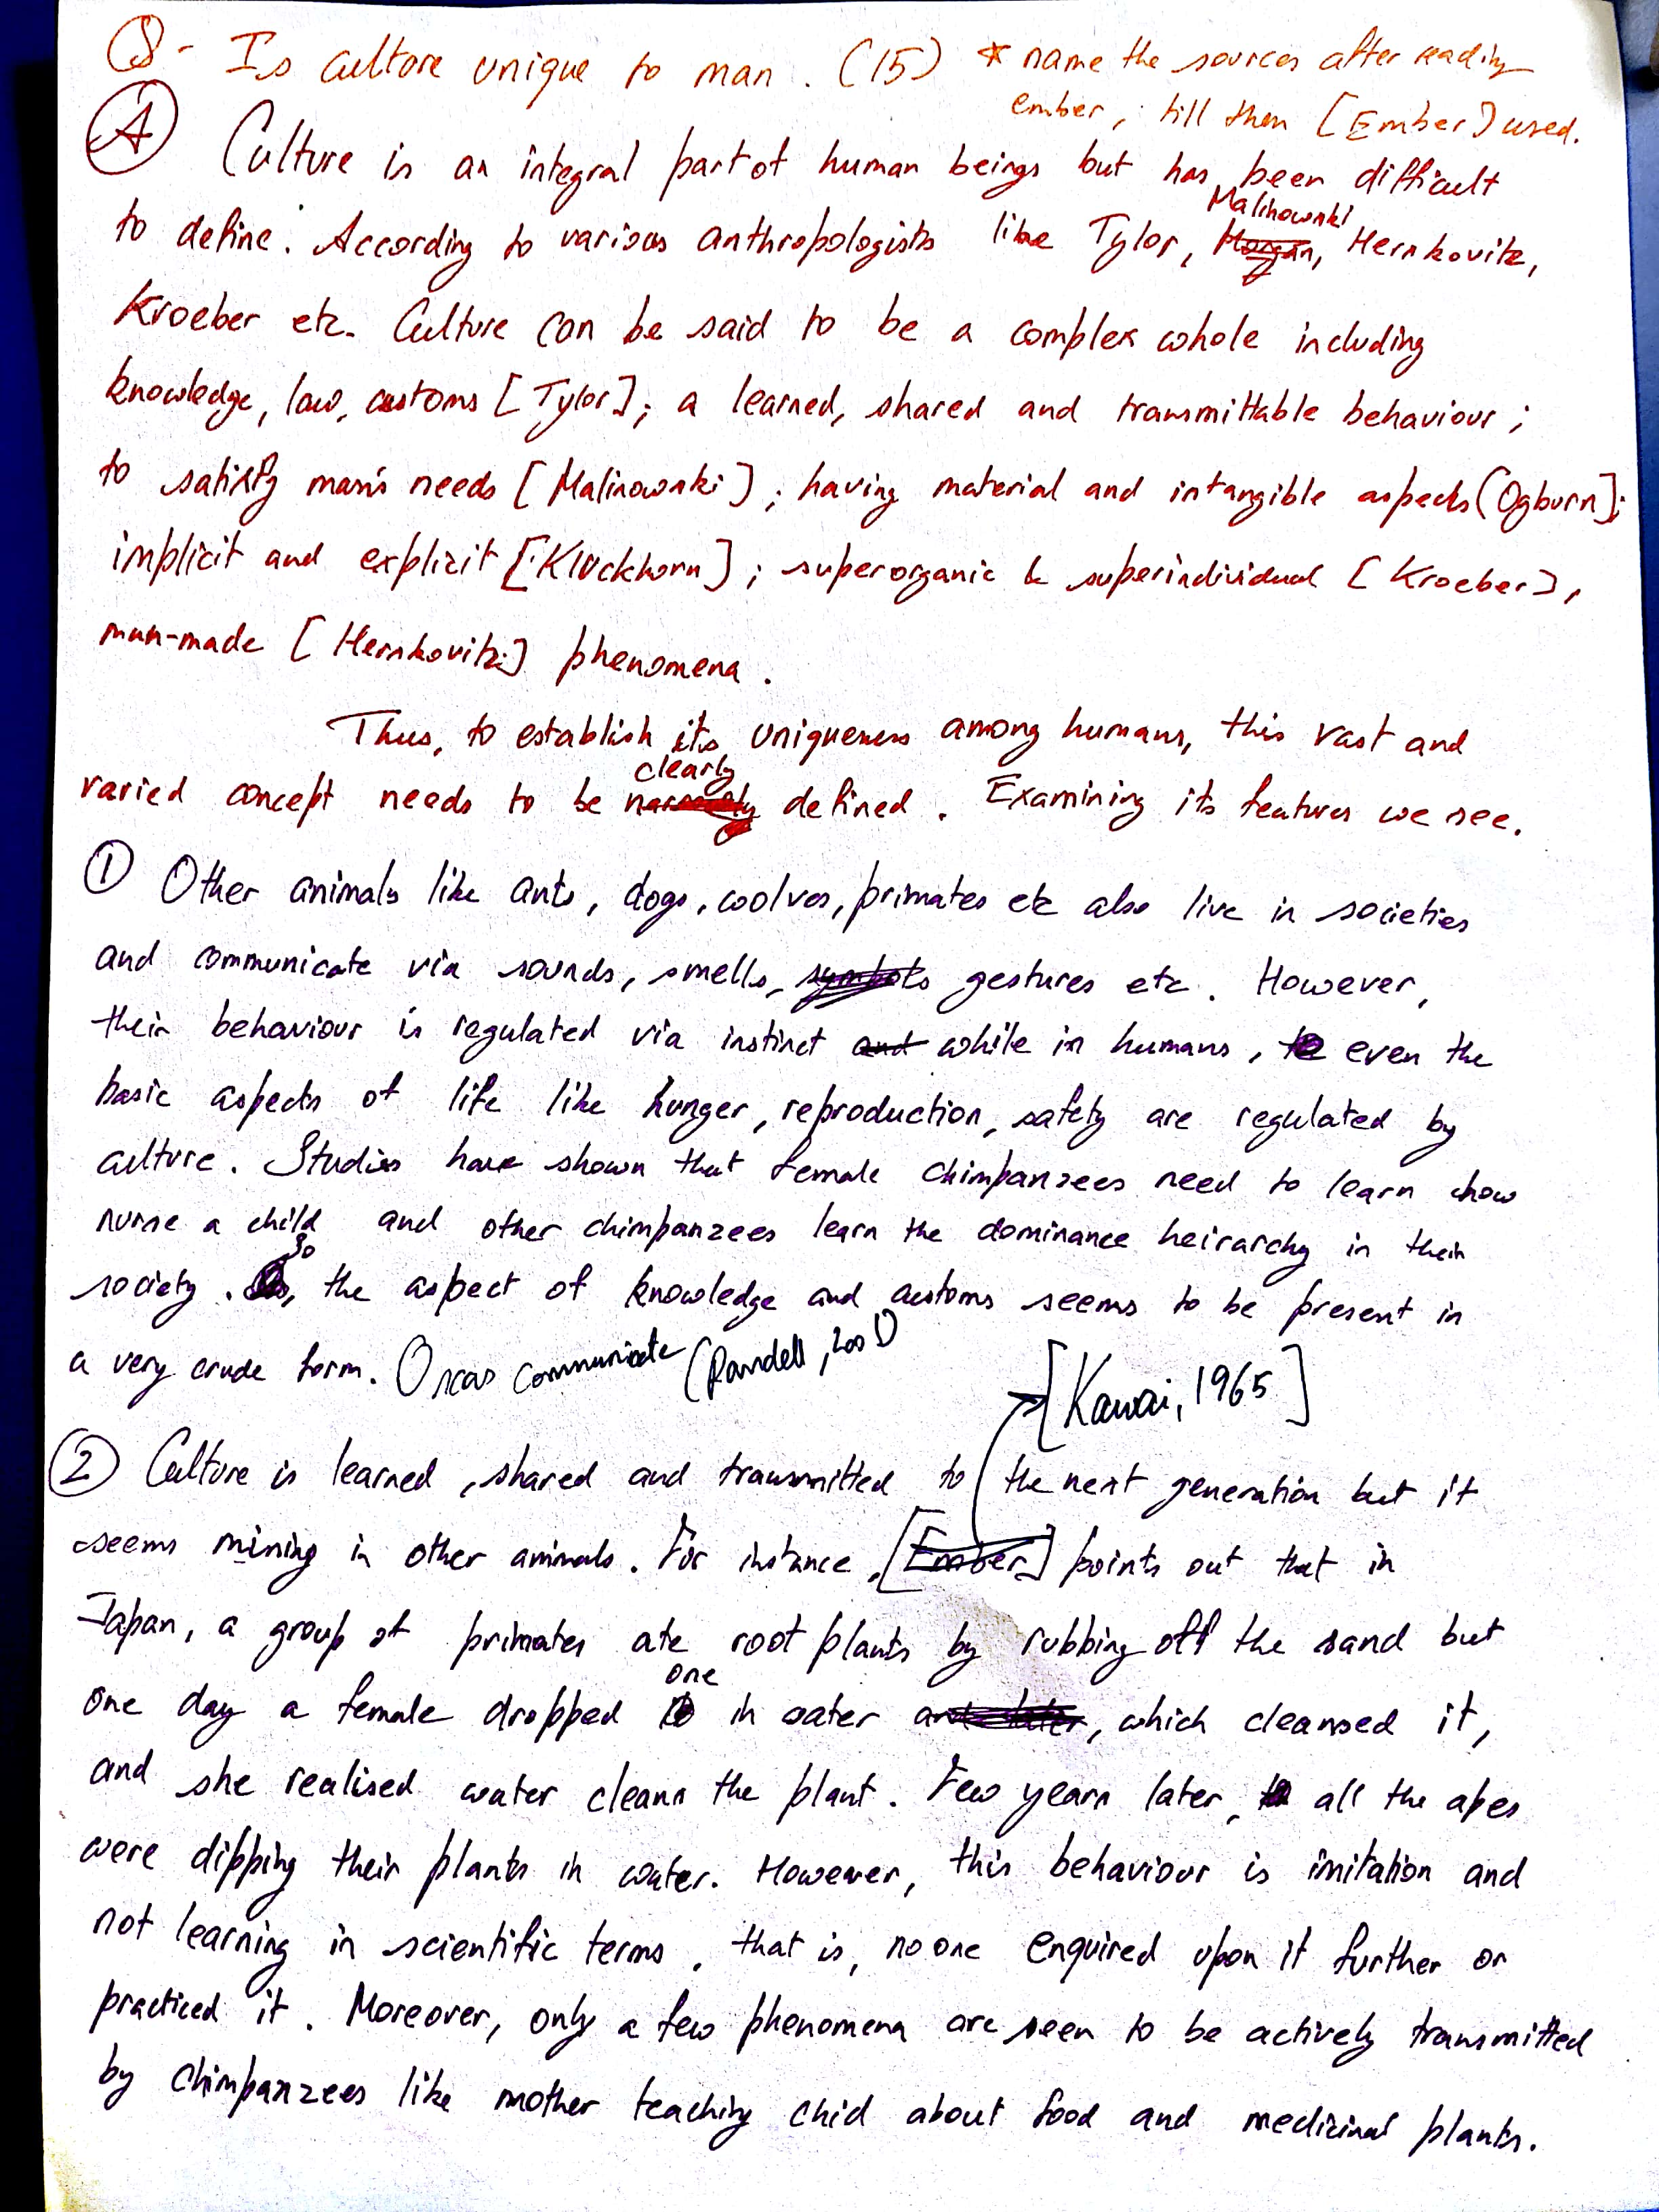 Q- Is Culture unique to man. (15) * name the sources after reading
ember, till then [Ember] used.
A Culture is an integral part of human beings but has been difficult
to define. According to various anthropologists like Tylor, Malinowski, Hernkovitz,
Kroeber etc. Culture can be said to be a complex whole including
knowledge, law, customs [Tylor]; a learned, shared and transmittable behaviour;
to satisfy man's needs [Malinowski]; having material and intangible aspects (Ogburn];
implicit and explicit [Kluckhorn]; superorganic & superindividual [Kroeber],
man-made [Hernkovitz] phenomena.
Thus, to establish its uniqueness among humans, this vast and
varied concept needs to be clearly defined. Examining its features we see.
① Other animals like ants, dogs, woolves, primates etc also live in societies
and communicate via sounds, smells, gestures etc. However,
their behaviour is regulated via instinct while in humans, even the
basic aspects of life like hunger, reproduction, safety are regulated by
culture. Studies have shown that female chimpanzees need to learn how
nurse a child and other chimpanzees learn the dominance heirarchy in their
society. So, the aspect of knowledge and customs seems to be present in
a very crude form. Orcas communicate (Ramdell, 2001)
[Kawai, 1965]
② Culture is learned, shared and transmitted to the next generation but it
seems mining in other animals. For instance, [Ember] points out that in
Japan, a group of primates ate root plants by rubbing off the sand but
one day a female dropped one in water, which cleansed it,
and she realised water cleans the plant. Few years later, all the apes
were dipping their plants in water. However, this behaviour is imitation and
not learning in scientific terms, that is, no one enquired upon it further or
practiced it. Moreover, only a few phenomena are seen to be actively transmitted
by chimpanzees like mother teaching chid about food and medicinal plants.